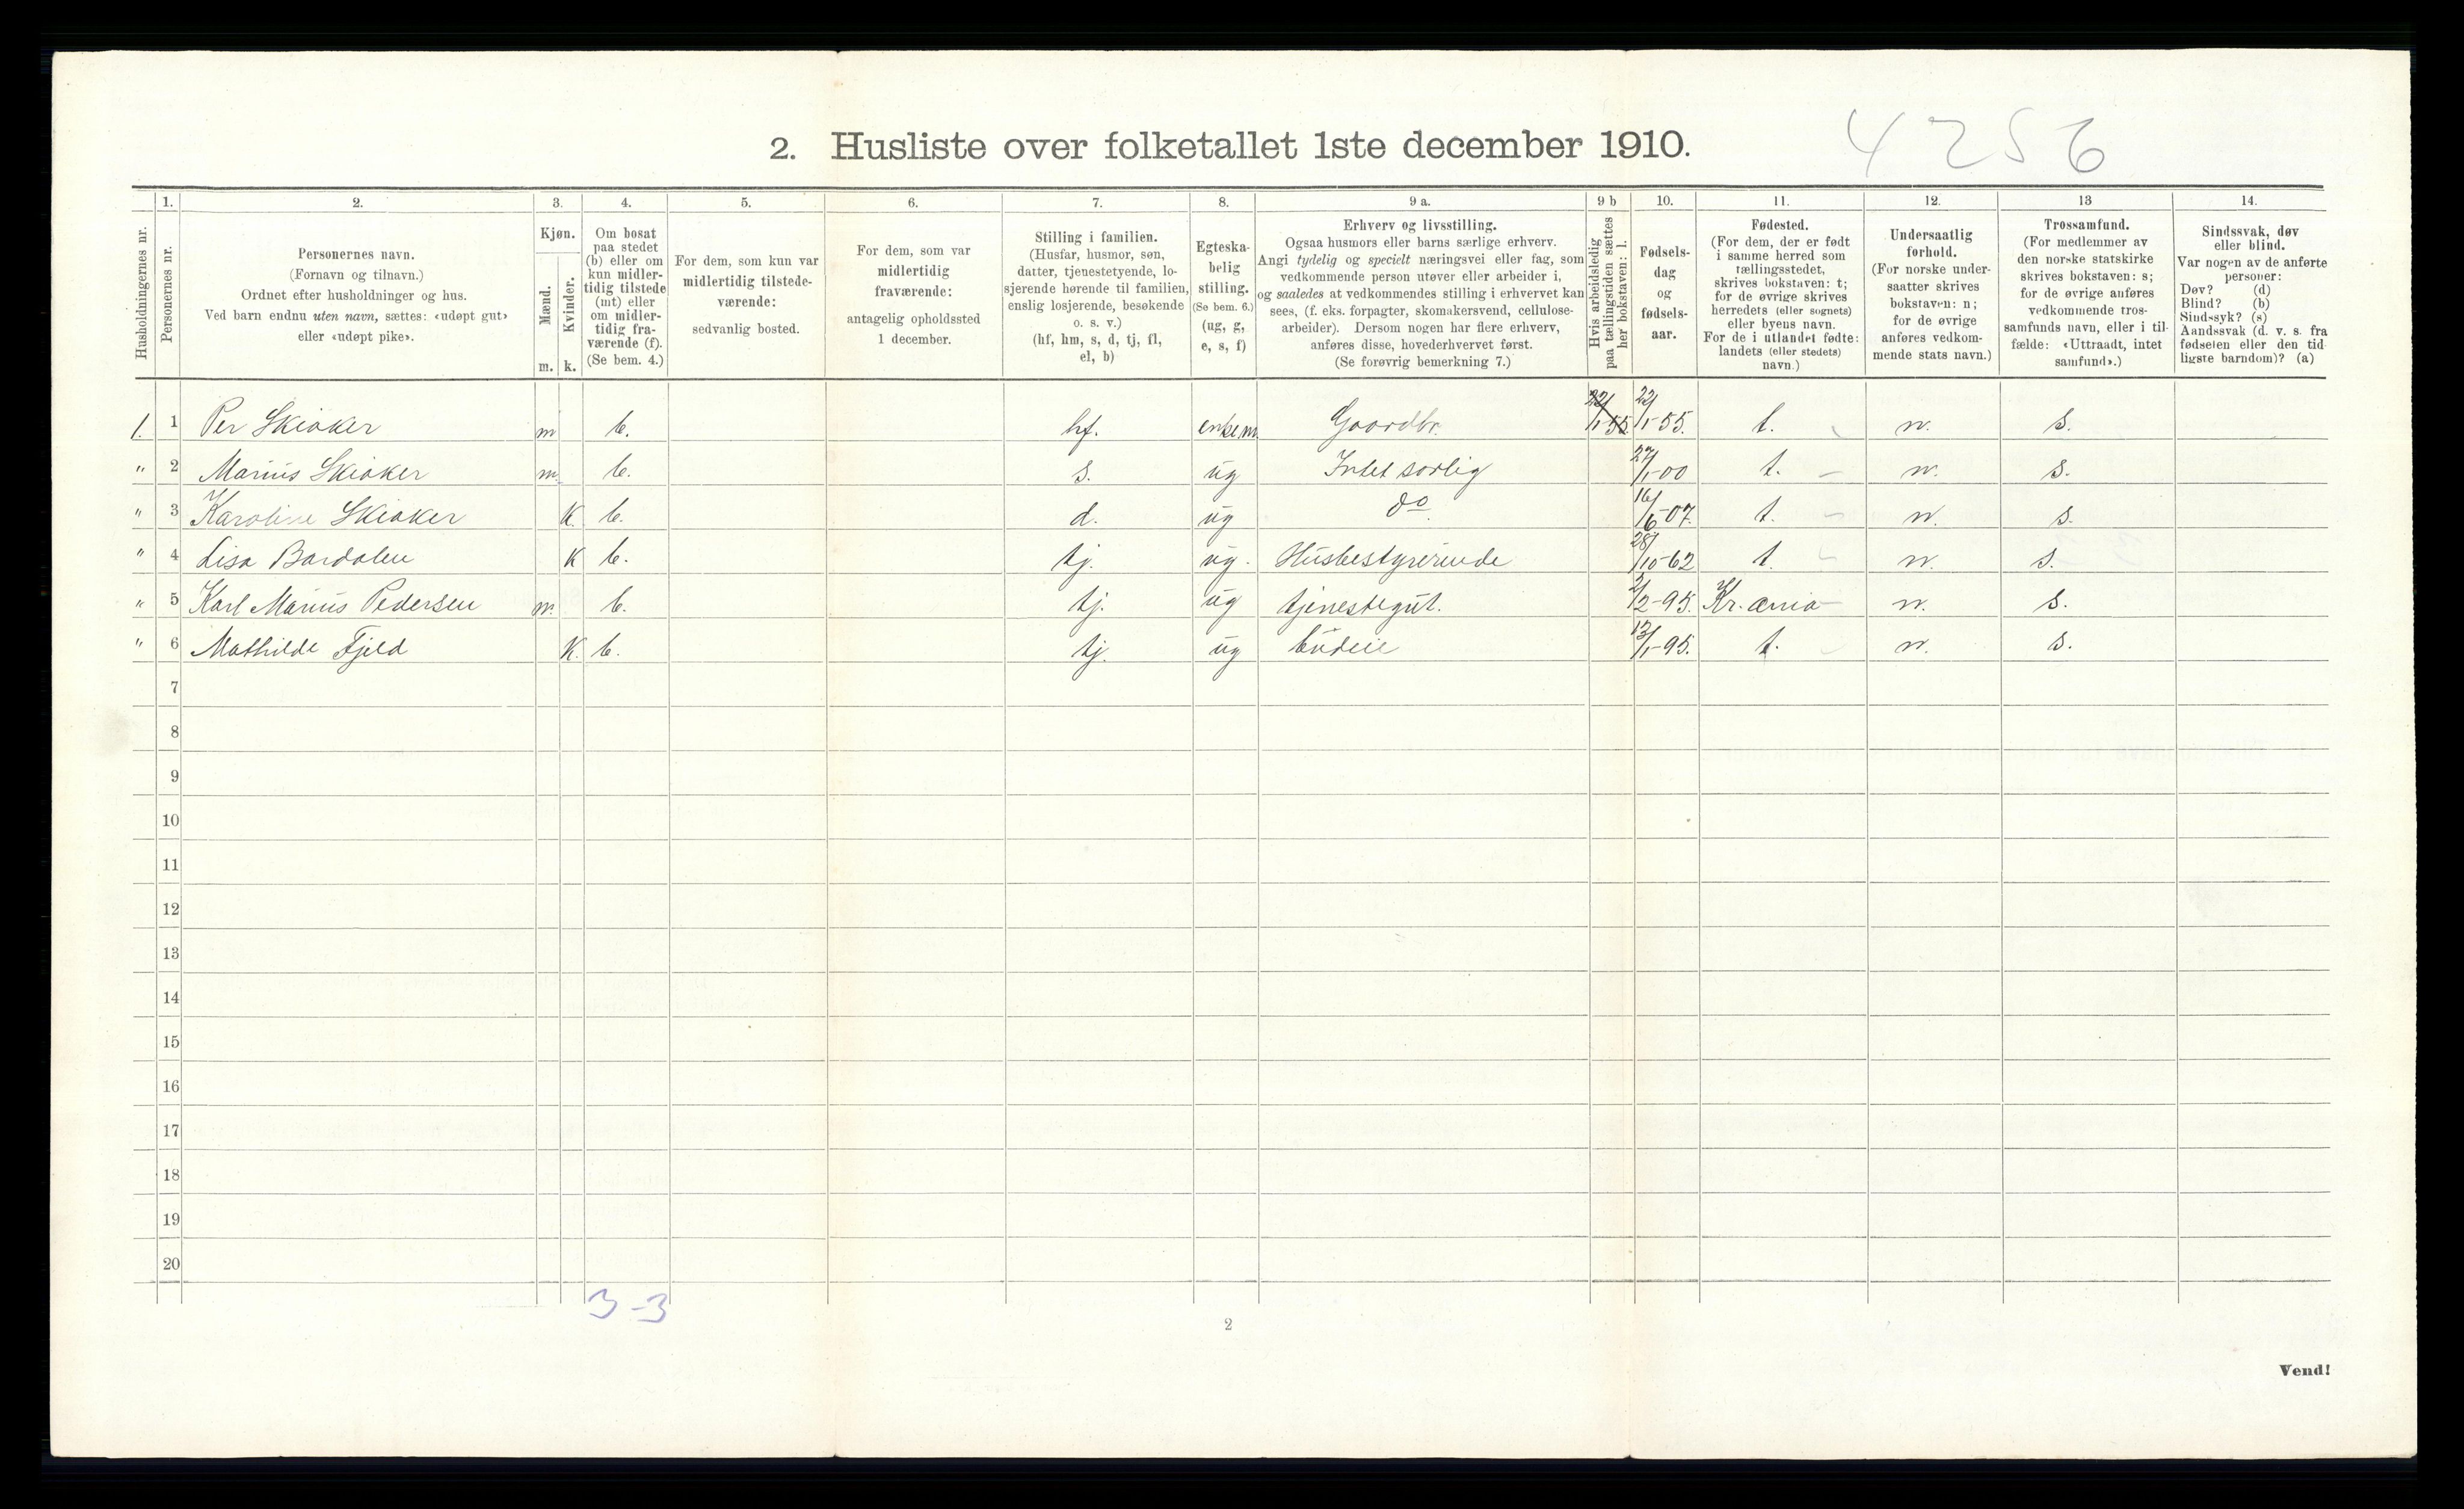 4256
2. Husliste over folketallet 1ste december 1910.
1. 2. 3. 4. 5. 6. 7. 8. 9 a. 9 b 10. 11. 12. 13 14.
Husholdningernes nr.
Personernes nr.
Personernes navn.
(Fornavn og tilnavn.)
Ordnet efter husholdninger og hus.
Ved barn endnu uten navn, sættes: «udøpt gut»
eller «udøpt pike».
Kjøn.
Mænd.
Kvinder.
m. k.
Om bosat
paa stedet
(b) eller om
kun midler-
tidig tilstede
(mt) eller
om midler-
tidig fra-
værende (f).
(Se bem. 4.)
For dem, som kun var
midlertidig tilstede-
værende:
sedvanlig bosted.
For dem, som var
midlertidig
fraværende:
antagelig opholdssted
1 december.
Stilling i familien.
(Husfar, husmor, søn,
datter, tjenestetyende, lo-
sjerende hørende til familien,
enslig losjerende, besøkende
o. s. v.)
(hf, hm, s, d, tj, fl,
el, b)
Egteska-
belig
stilling.
(Se bem. 6.)
(ug, g,
e, s, f)
Erhverv og livsstilling.
Ogsaa husmors eller barns særlige erhverv.
Angi tydelig og specielt næringsvei eller fag, som
vedkommende person utøver eller arbeider i,
og saaledes at vedkommendes stilling i erhvervet kan
sees, (f. eks. forpagter, skomakersvend, cellulose-
arbeider). Dersom nogen har flere erhverv,
anføres disse, hovederhvervet først.
(Se forøvrig bemerkning 7.)
Hvis arbeidsledig
paa tællingstiden sættes
her bokstaven: l.
Fødsels-
dag
og
fødsels-
aar.
Fødested.
(For dem, der er født
i samme herred som
tællingsstedet,
skrives bokstaven: t;
for de øvrige skrives
herredets (eller sognets)
eller byens navn.
For de i utlandet fødte:
landets (eller stedets)
navn.)
Undersaatlig
forhold.
(For norske under-
saatter skrives
bokstaven: n;
for de øvrige
anføres vedkom-
mende stats navn.)
Trossamfund.
(For medlemmer av
den norske statskirke
skrives bokstaven: s;
for de øvrige anføres
vedkommende tros-
samfunds navn, eller i til-
fælde: «Uttraadt, intet
samfund».)
Sindssvak, døv
eller blind.
Var nogen av de anførte
personer:
Døv? (d)
Blind? (b)
Sindssyk? (s)
Aandssvak (d. v. s. fra
fødselen eller den tid-
ligste barndom)? (a)
1. 1 Per Skiaker m b. hf. enkem Gaardbr. 22/1-55 22/1-55. t. n. s.
" 2 Marius Skiaker m. b. s. ug Intet særlig 27/1-00 t. n. s.
" 3 Karoline Skiaker K. b. d. ug do 16/6-07. t. n. s.
" 4 Lisa Bardalen K b. tj. ug. Husbestyrerinde 28/10-62 t. n. s.
" 5 Karl Marius Pedersen m. b. tj. ug tjenestegut. 2/2-95. Kr.ania n. s.
" 6 Mathilde Fjeld K. b. tj. ug budeie 13/1-95. t. n. s.
7
8
9
10
11
12
13
14
15
16
17
18
19
20
3-3
2
Vend!